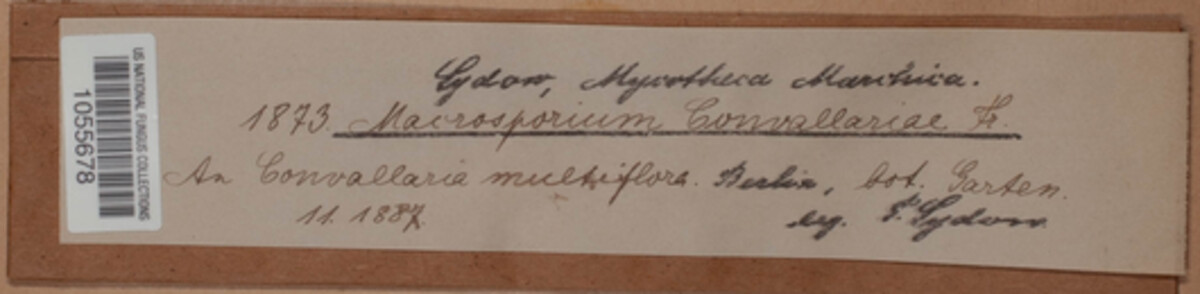 US NATIONAL FUNGUS COLLECTIONS
1055678
Sydow, Mycotheca Marchica.
1873. Macrosporium Convallariae Fr.
An Convallaria multiflora. Berlin, bot. Garten.
11. 1887.
leg. P. Sydow.